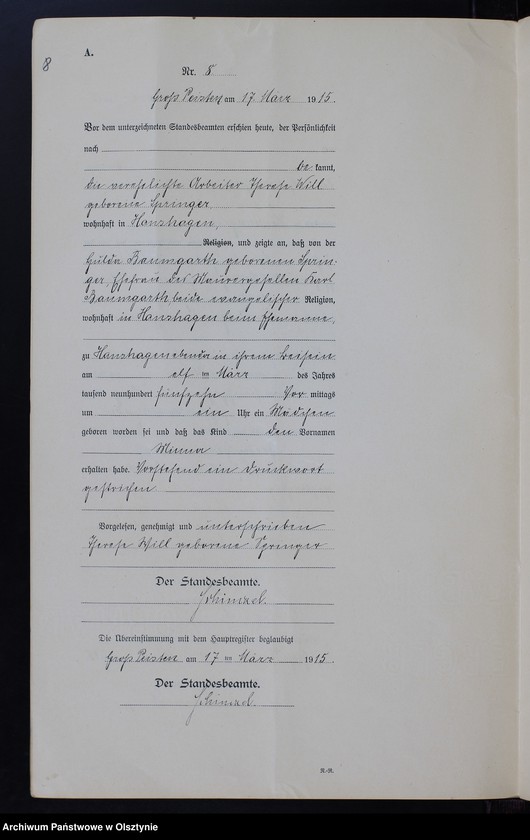 8
A.
Nr. 8
Groß Peisten am 17 März 1915.
Vor dem unterzeichneten Standesbeamten erschien heute, der Persönlichkeit
nach
be kannt,
die verehelichte Arbeiter Therese Will
geborene Springer
wohnhaft in Hanshagen,
Religion, und zeigte an, daß von der
Hulda Baumgarth geborenen Sprin-
ger, Ehefrau des Maurergesellen Karl
Baumgarth, beide evangelischer Religion,
wohnhaft in Hanshagen beim Ehemanne,
zu Hanshagen ebenda in ihrem Beisein
am elf ten März des Jahres
tausend neunhundert fünfzehn Vor mittags
um ein Uhr ein Mädchen
geboren worden sei und daß das Kind den Vornamen
Minna
erhalten habe. Vorstehend ein Druckwort
gestrichen
Vorgelesen, genehmigt und unterschrieben
Therese Will geborene Springer
Der Standesbeamte.
Schimzel.
Die Übereinstimmung mit dem Hauptregister beglaubigt
Groß Peisten am 17 ten März 1915.
Der Standesbeamte.
Schimzel.
Archiwum Państwowe w Olsztynie